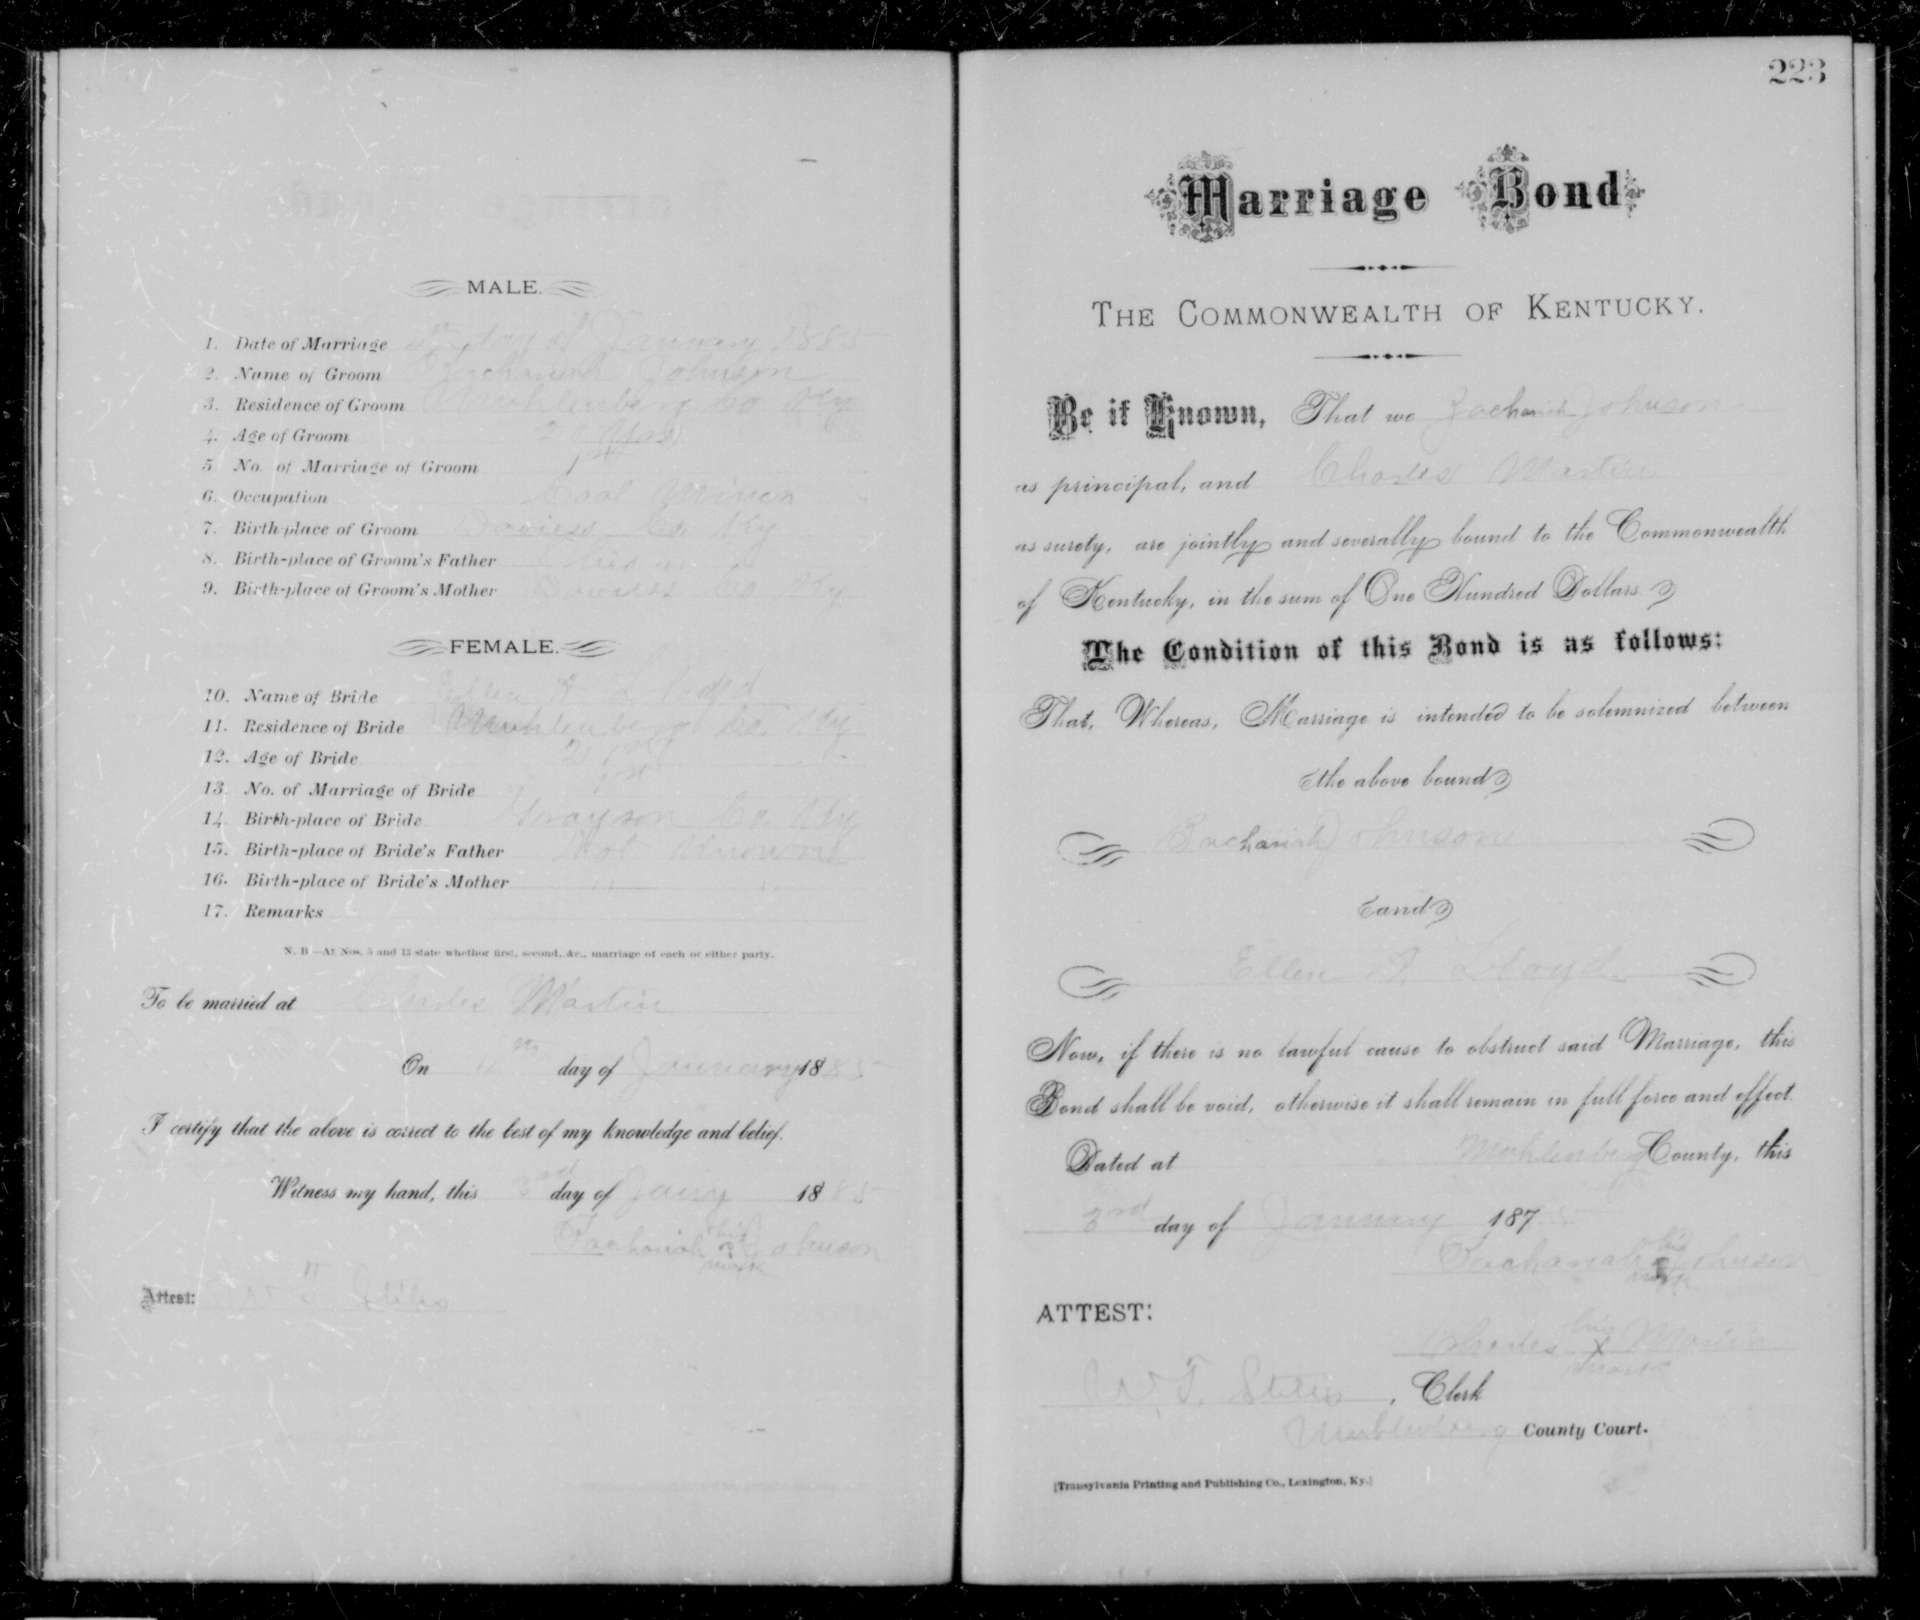 MALE.
1. Date of Marriage day of January 1885
2. Name of Groom Zachariah Johnson
3. Residence of Groom Muhlenberg Co Ky
4. Age of Groom
5. No. of Marriage of Groom 1st
6. Occupation Coal Miner
7. Birth-place of Groom Daviess Co. Ky
8. Birth-place of Groom's Father
9. Birth-place of Groom's Mother Daviess Co Ky
FEMALE.
10. Name of Bride Ellen A
11. Residence of Bride Muhlenberg Co. Ky
12. Age of Bride 21
13. No. of Marriage of Bride 1st
14. Birth-place of Bride Grayson Co. Ky
15. Birth-place of Bride's Father Not Known
16. Birth-place of Bride's Mother " "
17. Remarks
N. B.—At Nos. 5 and 13 state whether first, second, &c., marriage of each or either party.
To be married at Charles Martin
On 4th day of January 1885
I certify that the above is correct to the best of my knowledge and belief.
Witness my hand, this 3rd day of Jany 1885
his
Zachariah Johnson
mark
Attest: W. T. Stiles
223
Marriage Bond
THE COMMONWEALTH OF KENTUCKY.
Be it Known, That we Zachariah Johnson
as principal, and Charles Martin
as surety, are jointly and severally bound to the Commonwealth
of Kentucky, in the sum of One Hundred Dollars.
The Condition of this Bond is as follows:
That, Whereas, Marriage is intended to be solemnized between
the above bound
Zachariah Johnson
and
Ellen A. Lloyd
Now, if there is no lawful cause to obstruct said Marriage, this
Bond shall be void, otherwise it shall remain in full force and effect.
Dated at Muhlenberg County, this
3rd day of January 1875
his
Zachariah Johnson
mark
ATTEST:
his
Charles X Martin
mark
W. T. Stiles, Clerk
Muhlenberg County Court.
[Transylvania Printing and Publishing Co., Lexington, Ky.]